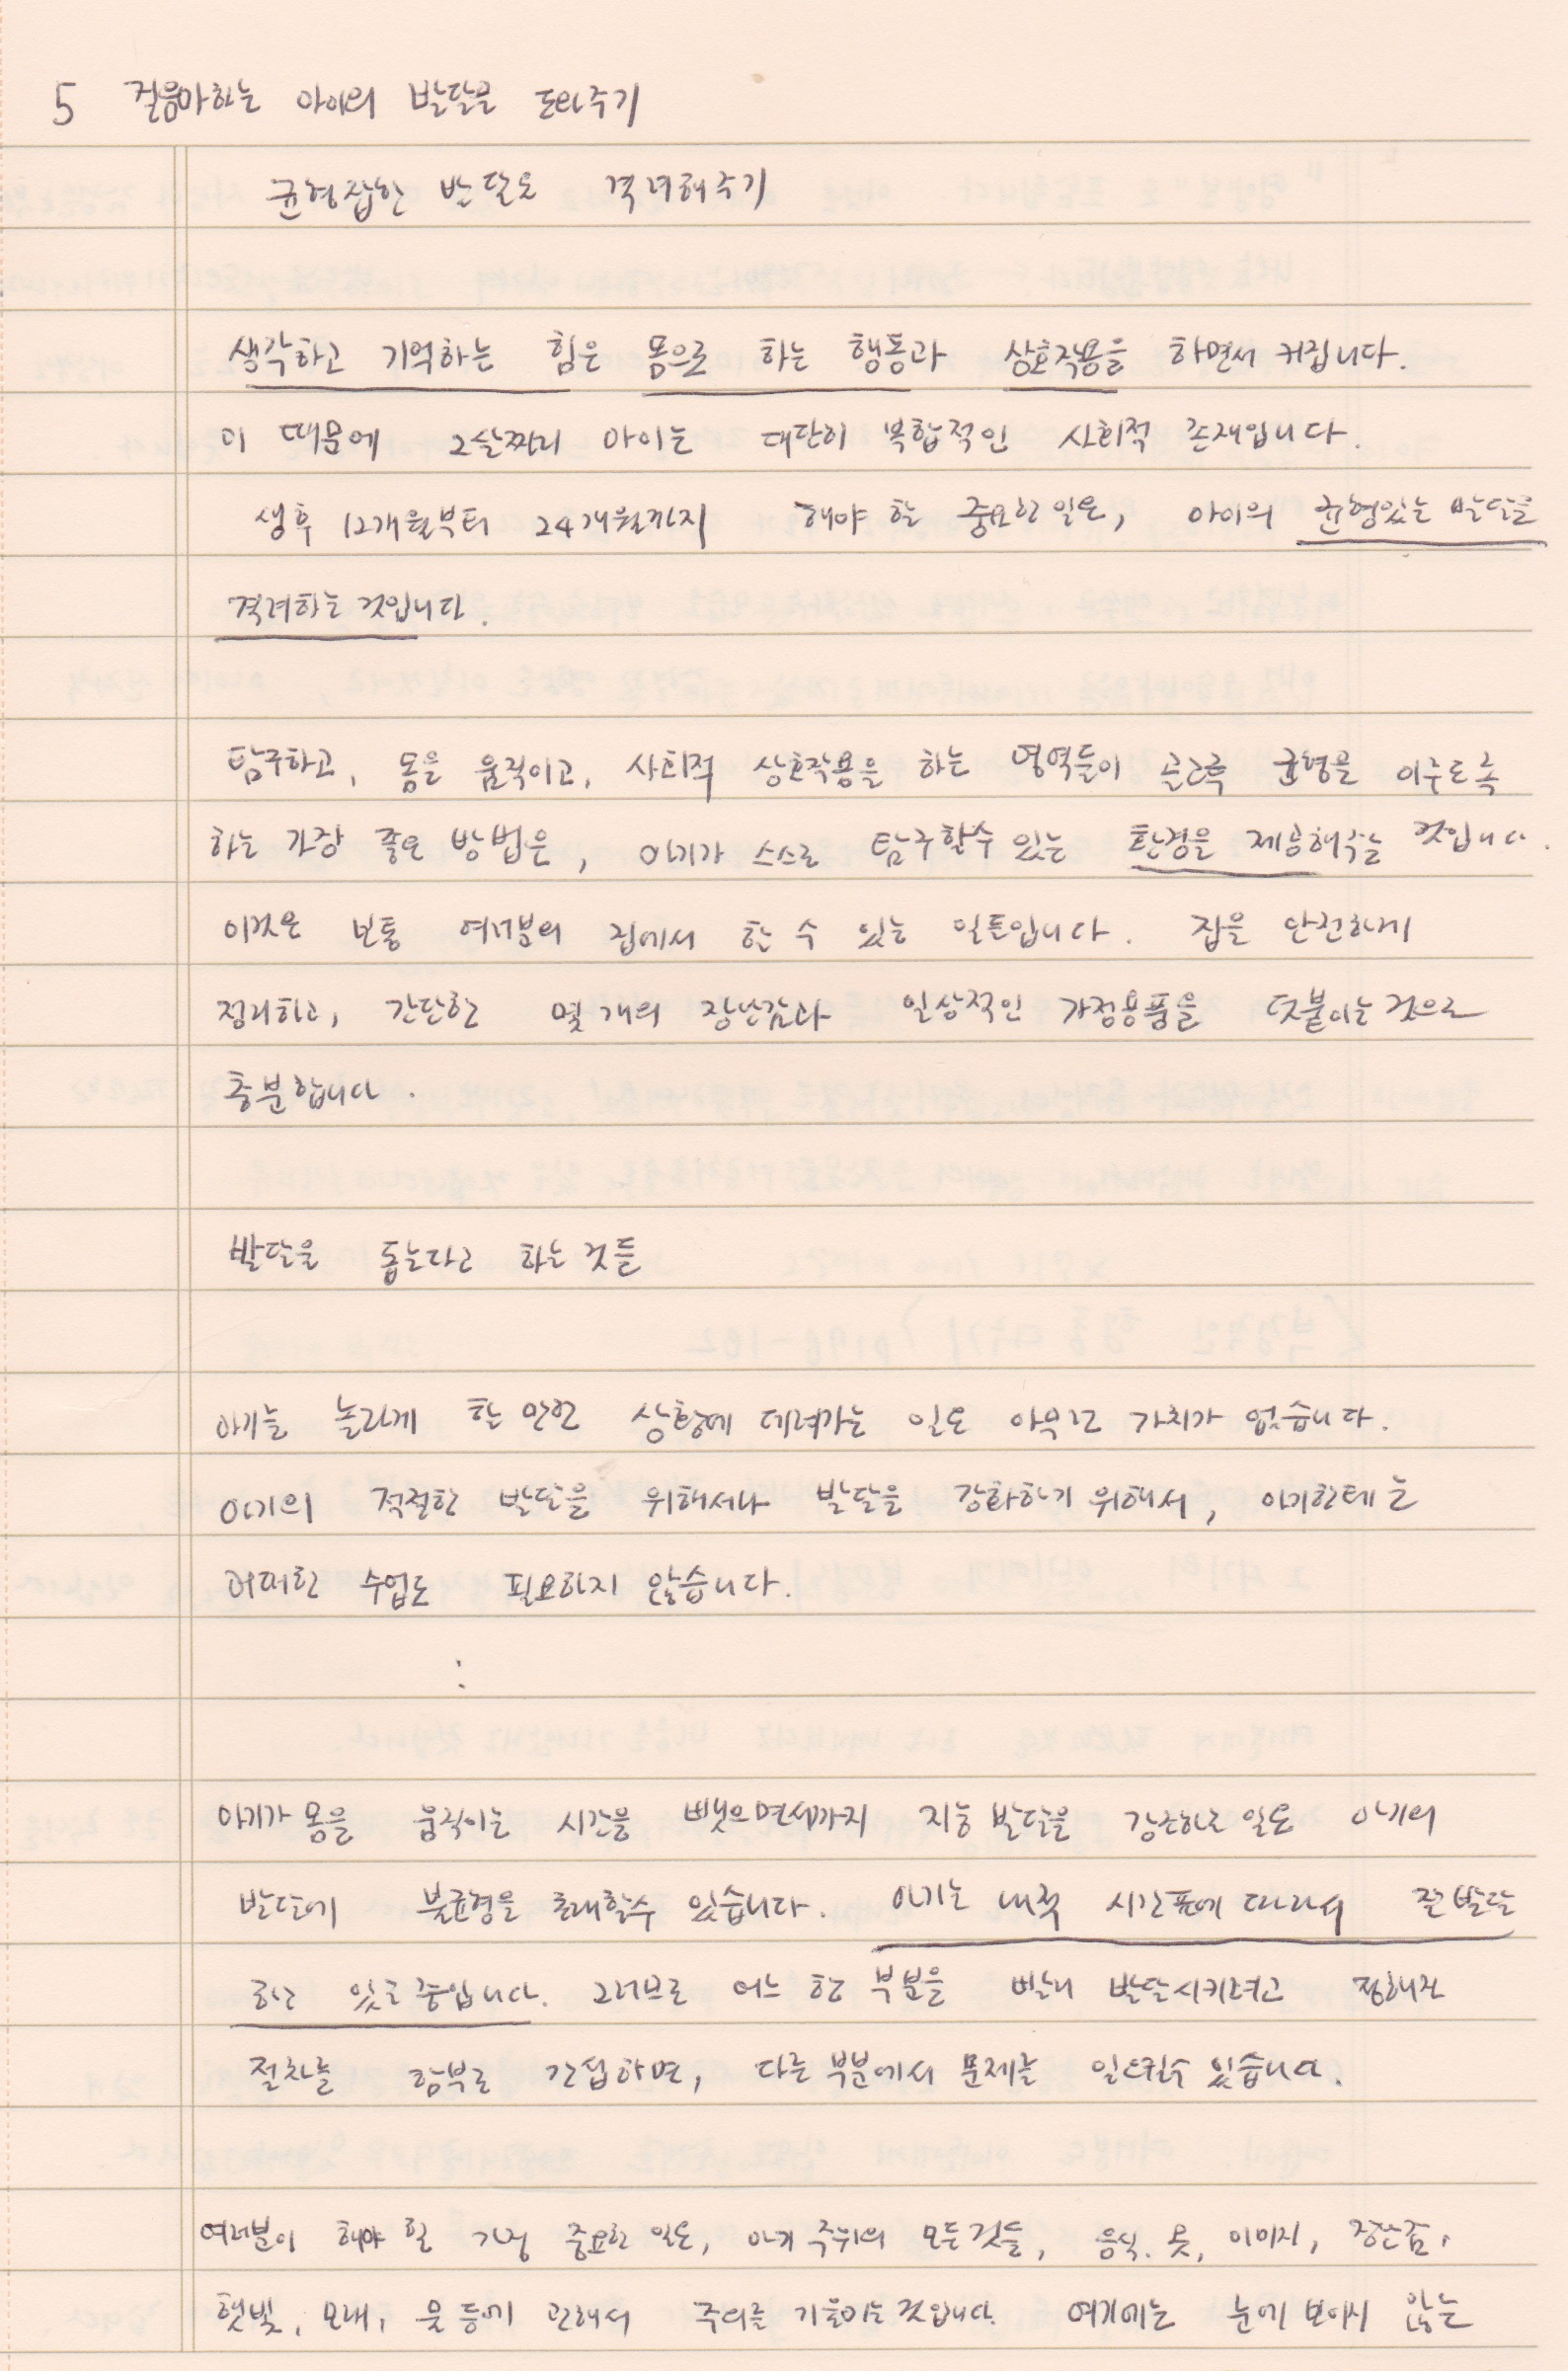 5 걸음마하는 아이의 발달을 도와주기
균형잡힌 발달을 격려해주기
생각하고 기억하는 힘은 몸으로 하는 행동과 상호작용을 하면서 커집니다.
이 때문에 2살짜리 아이는 대단히 복합적인 사회적 존재입니다.
생후 12개월부터 24개월까지 해야 할 중요한 일은, 아이의 균형있는 발달을
격려하는 것입니다.
탐구하고, 몸을 움직이고, 사회적 상호작용을 하는 영역들이 골고루 균형을 이루도록
하는 가장 좋은 방법은, 아기가 스스로 탐구할수 있는 환경을 제공해주는 것입니다.
이것은 보통 여러분의 집에서 할 수 있는 일들입니다. 집을 안전하게
정리하고, 간단한 몇 개의 장난감과 일상적인 가정용품을 덧붙이는 것으로
충분합니다.
발달을 돕는다고 하는 것들
아기를 놀라게 할 만한 상황에 데려가는 일은 아무런 가치가 없습니다.
아기의 적절한 발달을 위해서나 발달을 강화하기 위해서, 아기한테는
어떠한 수업도 필요하지 않습니다.
:
아기가 몸을 움직이는 시간을 빼앗으면서까지 지능 발달을 강조하는 일은 아기의
발달에 불균형을 초래할수 있습니다. 아기는 내적 시간표에 따라서 잘 발달
하고 있는 중입니다. 그러므로 어느 한 부분을 빨리 발달시키려고 정해진
절차를 함부로 간섭하면, 다른 부분에서 문제를 일으킬수 있습니다.
여러분이 해야 할 가장 중요한 일은, 아기 주위의 모든 것들, 음식, 옷, 이미지, 장난감,
햇빛, 모래, 물 등에 관해서 주의를 기울이는 것입니다. 여기에는 눈에 보이지 않는